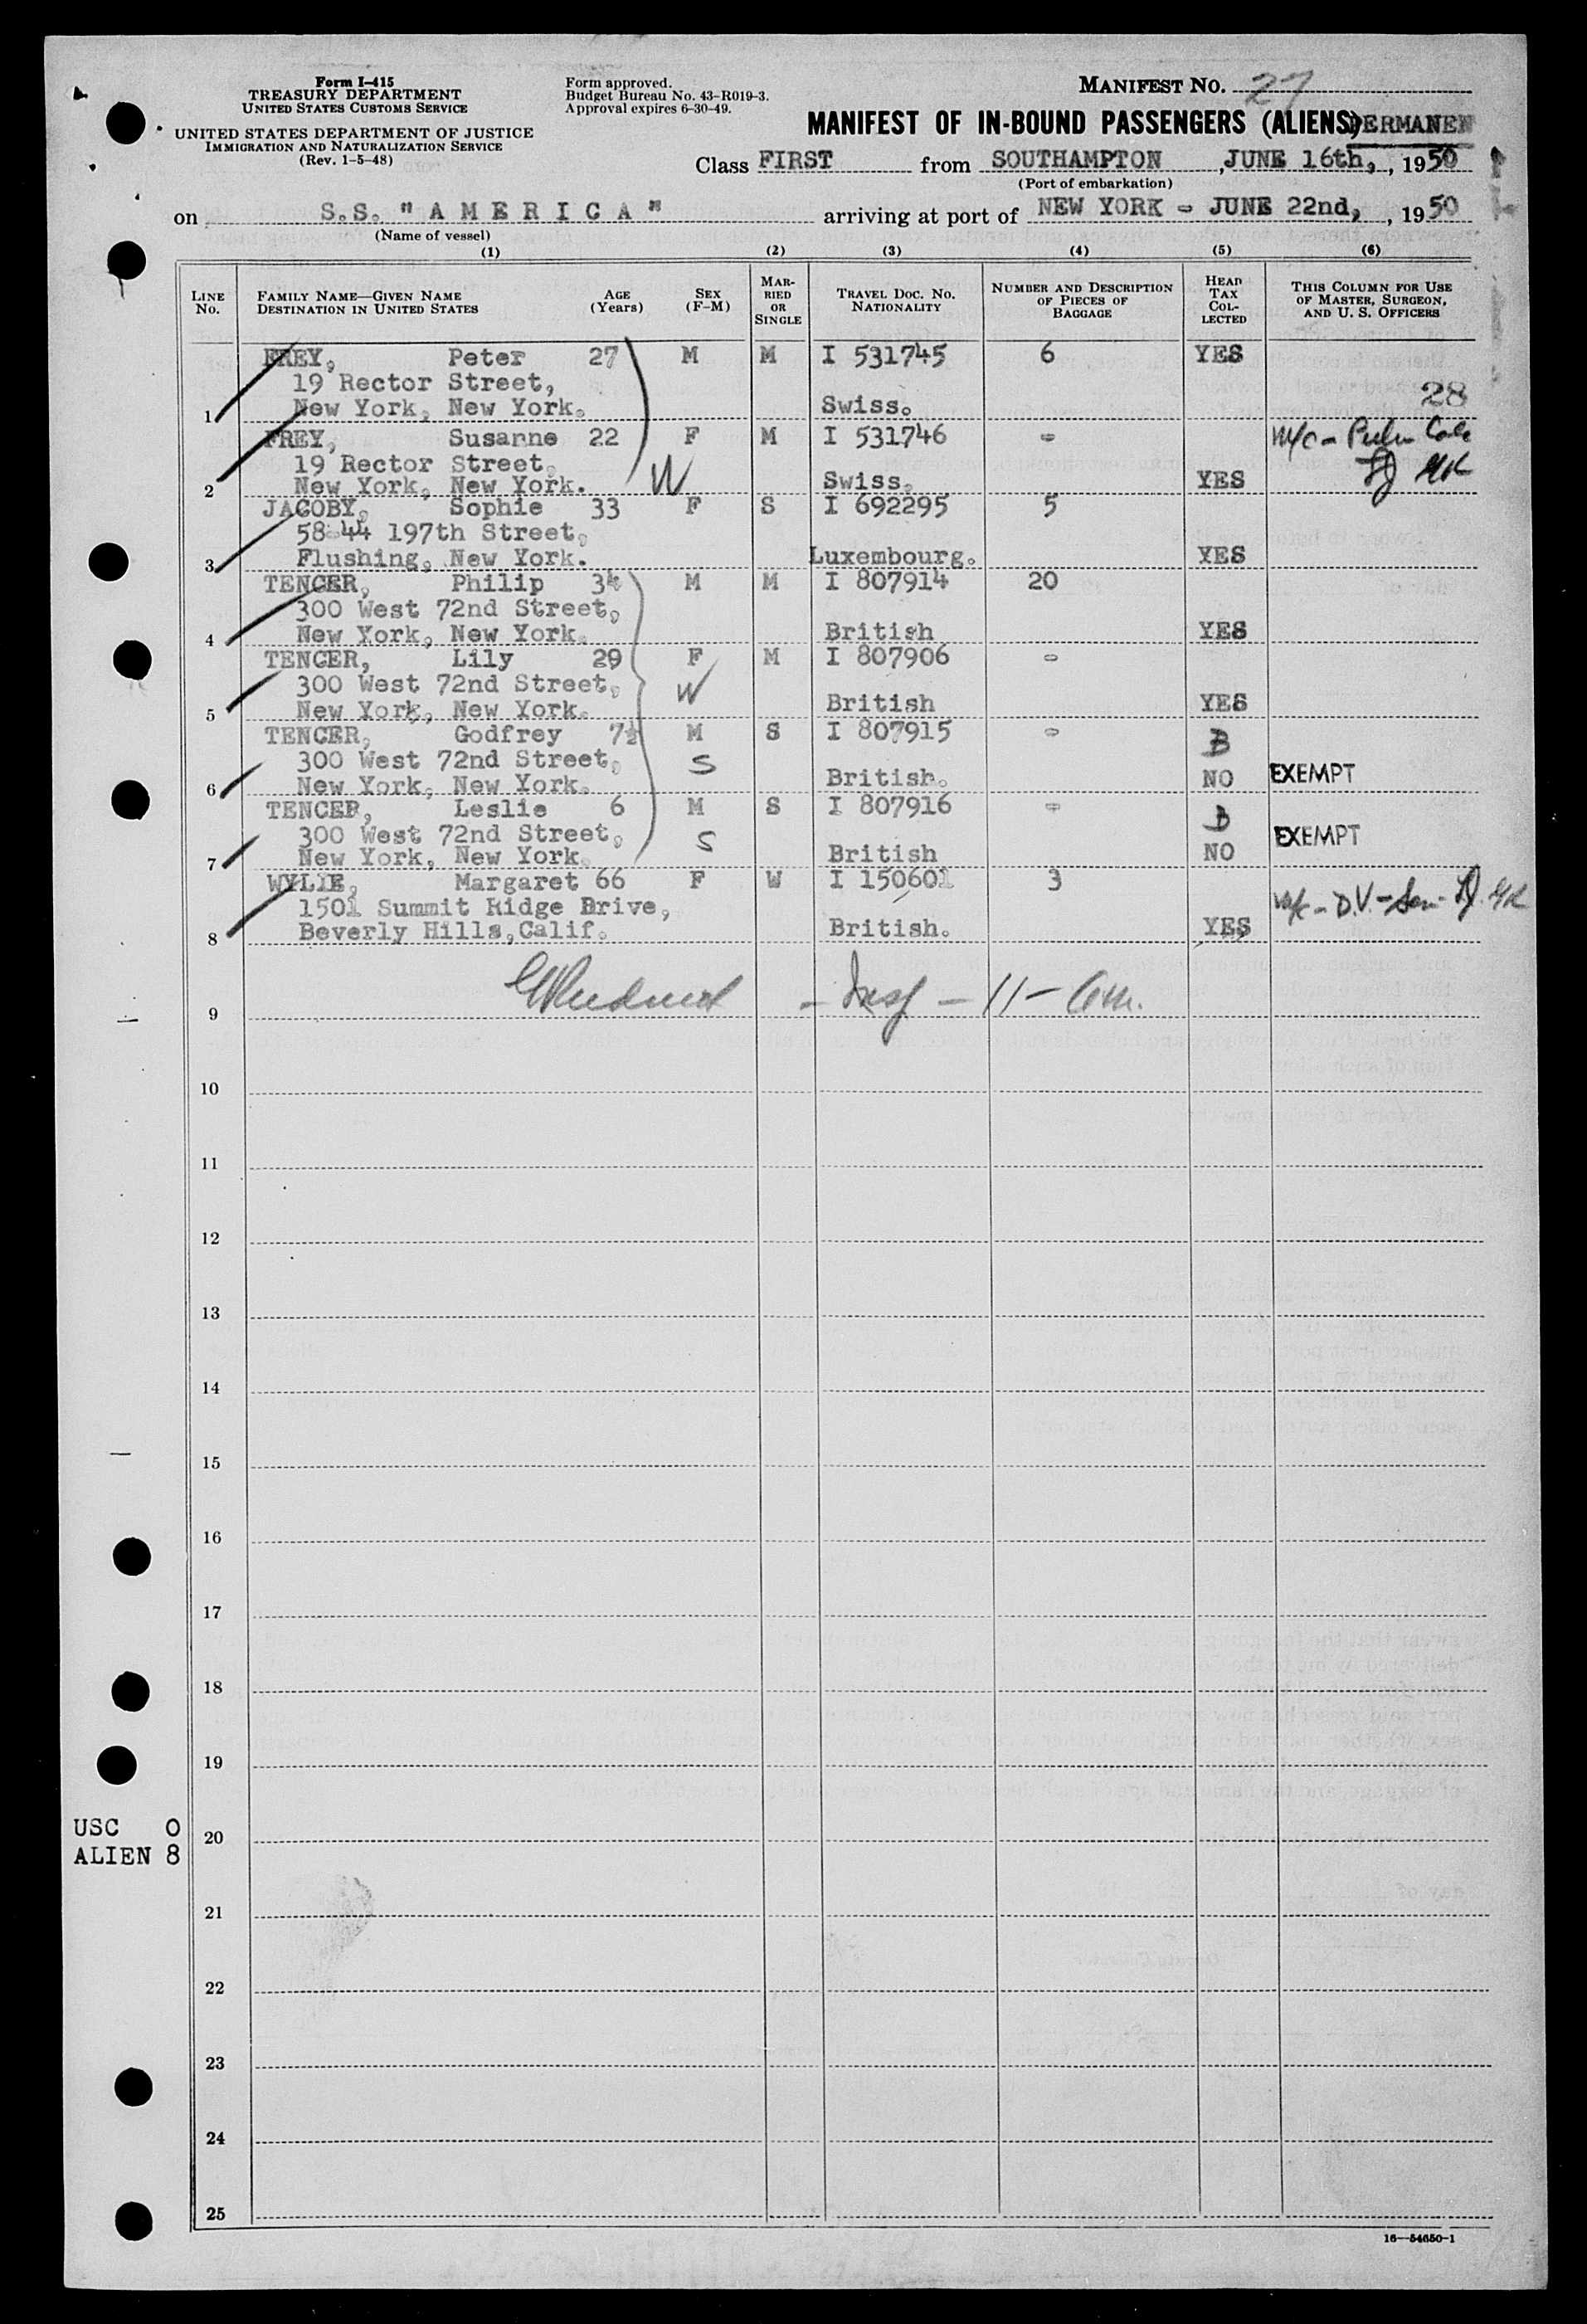 Form I-415
TREASURY DEPARTMENT
UNITED STATES CUSTOMS SERVICE
UNITED STATES DEPARTMENT OF JUSTICE
IMMIGRATION AND NATURALIZATION SERVICE
(Rev. 1-5-48)
Form approved.
Budget Bureau No. 43-R019-3.
Approval expires 6-30-49.
MANIFEST NO. 27
MANIFEST OF IN-BOUND PASSENGERS (ALIENS) PERMANEN
Class FIRST from SOUTHAMPTON, JUNE 16th, , 1950
(Port of embarkation)
on S.S. "A M E R I C A" arriving at port of NEW YORK - JUNE 22nd, , 1950
(Name of vessel)
(1) (2) (3) (4) (5) (6)
LINE NO.
FAMILY NAME—GIVEN NAME
DESTINATION IN UNITED STATES
AGE (Years)
SEX (F-M)
MARRIED OR SINGLE
TRAVEL DOC. NO. NATIONALITY
NUMBER AND DESCRIPTION OF PIECES OF BAGGAGE
HEAD TAX COLLECTED
THIS COLUMN FOR USE OF MASTER, SURGEON, AND U. S. OFFICERS
FREY, Peter 27 M M I 531745 6 YES
19 Rector Street,
1 New York, New York. Swiss. 28
FREY, Susanne 22 F M I 531746 -
19 Rector Street,
2 New York, New York. W Swiss. YES
JACOBY, Sophie 33 F S I 692295 5
58-44 197th Street,
3 Flushing, New York. Luxembourg. YES
TENCER, Philip 34 M M I 807914 20
300 West 72nd Street,
4 New York, New York. British YES
TENCER, Lily 29 F M I 807906 -
300 West 72nd Street, W
5 New York, New York. British YES
TENCER, Godfrey 7½ M S I 807915 - B
300 West 72nd Street, S
6 New York, New York. British. NO EXEMPT
TENCER, Leslie 6 M S I 807916 - B
300 West 72nd Street, S EXEMPT
7 New York, New York. British NO
WYLIE, Margaret 66 F W I 150601 3
1501 Summit Ridge Drive,
8 Beverly Hills, Calif. British. YES
9 - Insp - 11 -
10
11
12
13
14
15
16
17
18
19
USC 0
20
ALIEN 8
21
22
23
24
25
16—54650-1